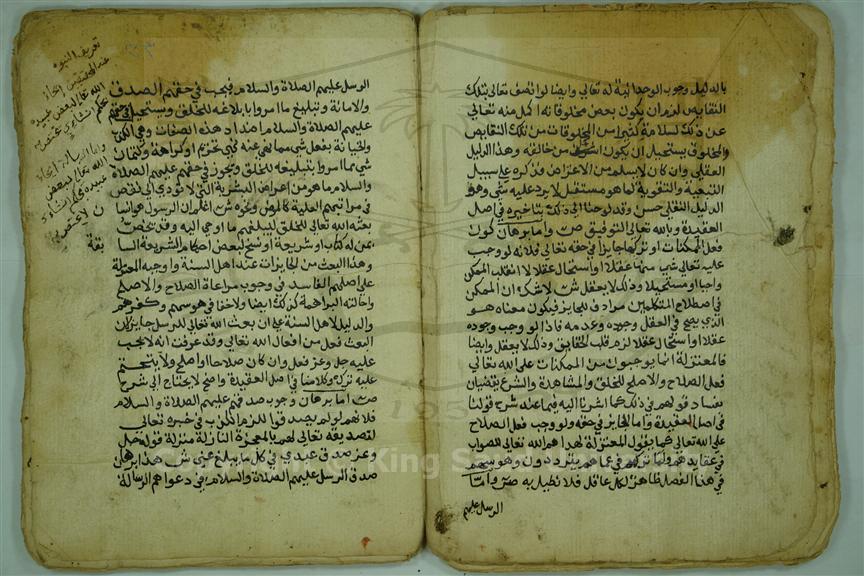 بالدليل وجوب الوحدانية له تعالى وايضا لو اتصف تعالى بتلك
النقايص لزم ان يكون بعض مخلوقاته اكمل منه تعالى
عن ذلك لسلامة كثير من المخلوقات من تلك النقايص
والمخلوق يستحيل ان يكون اشرف من خالقه وهذا الدليل
العقلي وان كان لا يسلم من الاعتراض فذكره على سبيل
التبعية والتقوية لما هو مستقل لا يرد عليه شي وهو
الدليل النقلي حسن وقد لوحنا الى ذلك بتاخيره في اصل
العقيدة وبالله تعالى التوفيق ص واما برهان كون
فعل الممكنات او تركها جايزا في حقه تعالى فلانه لو وجب
عليه تعالى شي منها عقلا او استحال عقلا لانقلب الممكن
واجبا او مستحيلا وذلك لا يعقل ش لا شك ان الممكن
في اصطلاح المتكلمين مرادف للجايز فيكون معناه هو
الذي يصح في العقل وجوده وعدمه فاذا لو وجب وجوده
عقلا او استحال عقلا لزم قلب الحقايق وذلك لا يعقل وايضا
فالمعتزلة انما يوجبون من الممكنات على الله تعالى
فعل الصلاح والاصلح للخلق والمشاهدة والشرع يقضيان
بفساد قولهم في ذلك كما اشرنا اليه فيما عند شرح قولنا
في اصل العقيدة واما الجايز في حقه ولو وجب فعل الصلاح
على الله تعالى كما يقول المعتزلة لهداهم الله تعالى للصواب
في عقايدهم ولما تركهم في عماهم يترددون وهوسهم
في هذا الفصل ظاهر لكل عاقل فلا نطيل به ص واما
الرسل عليهم
الرسل عليهم الصلاة والسلام فيجب في حقهم الصدق
والامانة وتبليغ ما امروا بابلاغه للخلق ويستحيل في حقهم
عليهم الصلاة والسلام اضداد هذه الصفات وهي الكذب
والخيانة بفعل شي مما نهي عنه نهي تحريم او كراهة وكتمان
شي مما امروا بتبليغه للخلق ويجوز في حقهم عليهم الصلاة
والسلام ما هو من اعراض البشرية التي لا تودي الى نقص
في مراتبهم العلية كالمرض ونحوه ش اعلم ان الرسول هو انسا
بعثه الله تعالى للخلق ليبلغهم ما اوحي اليه وقد يخص
بمن له كتاب او شريعة او نسخ لبعض احكام الشريعة السا
بقة
وهذا البعث من الجايزات عند اهل السنة واوجبه المعتزلة
على اصلهم الفاسد في وجوب مراعاة الصلاح والاصلح
واحالته البراهمة كذلك ايضا ولا خفا في هوسهم وكفرهم
والدليل لاهل السنة على ان بعث الله تعالى للرسل جايز ان
البعث فعل من افعال الله تعالى وقد عرفت انه لا يجب
عليه جل وعز فعل وان كان صلاحا او اصلح ولا يتحتم
عليه تركه وكلامنا في اصل العقيدة واضح لا يحتاج الى شرح
ص اما برهان وجوب صدقهم عليهم الصلاة والسلام
فلانهم لو لم يصدقوا للزم الكذب في خبره تعالى
لتصديقه تعالى لهم بالمعجزة النازلة منزلة قوله جل
وعز صدق عبدي في كل ما يبلغ عني ش هذا برهان
صدق الرسل عليهم الصلاة والسلام في دعواهم الرسالة
تعريف النبوة
الله تعالى لبعض عبيده
الله تعالى لبعض